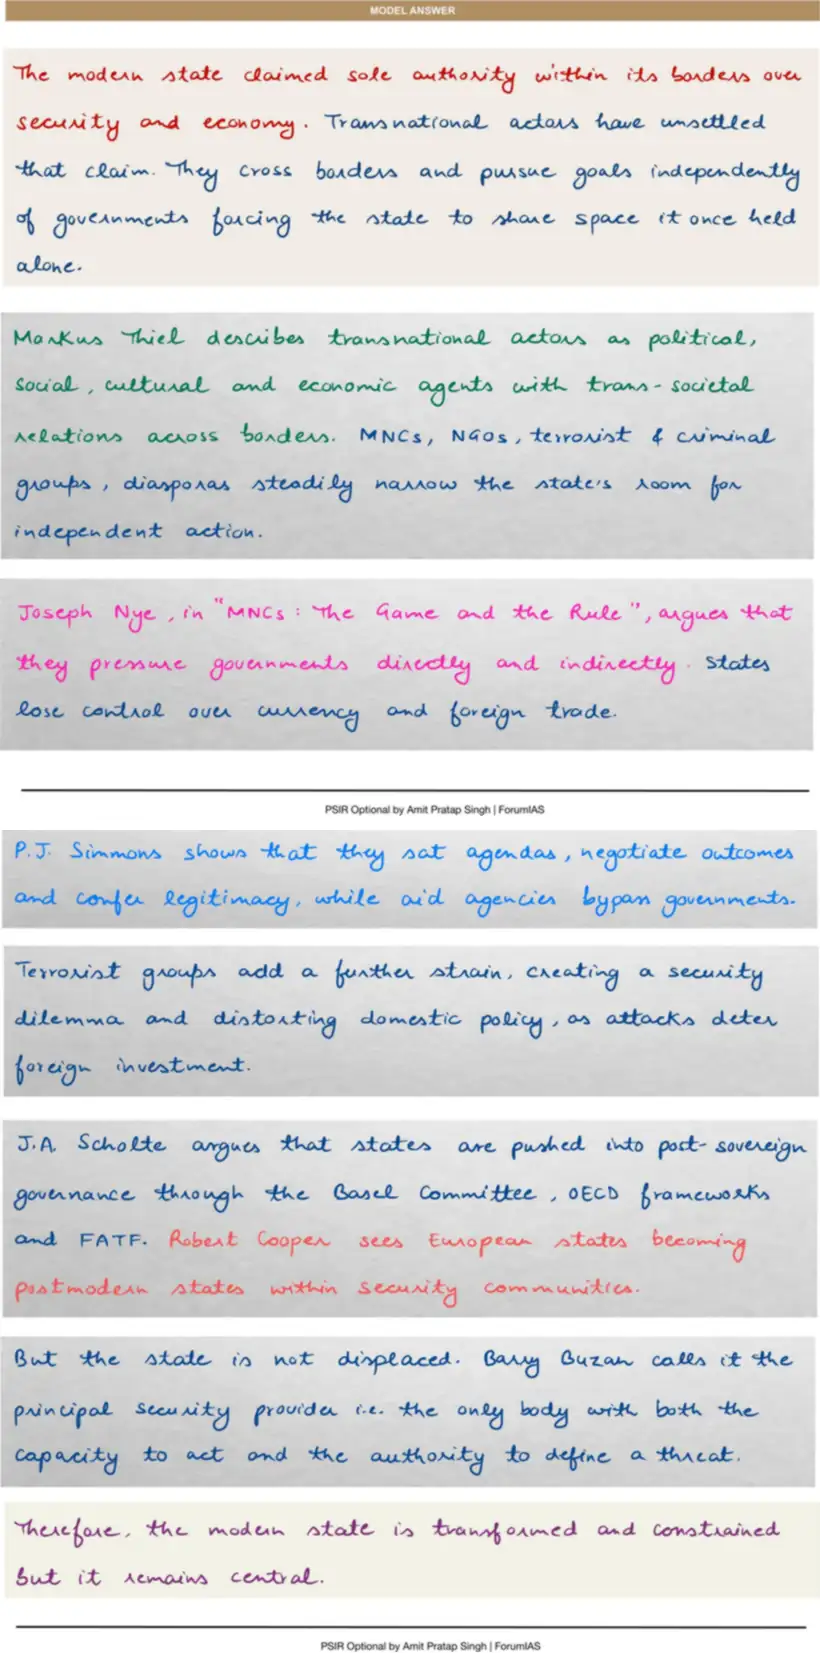 MODEL ANSWER
The modern state claimed sole authority within its borders over
security and economy. Transnational actors have unsettled
that claim. They cross borders and pursue goals independently
of governments forcing the state to share space it once held
alone.
Markus Thiel describes transnational actors as political,
social, cultural and economic agents with trans-societal
relations across borders. MNCs, NGOs, terrorist & criminal
groups, diasporas steadily narrow the state's room for
independent action.
Joseph Nye, in "MNCs: The Game and the Rule", argues that
they pressure governments directly and indirectly. States
lose control over currency and foreign trade.
PSIR Optional by Amit Pratap Singh | ForumIAS
P.J. Simmons shows that they sat agendas, negotiate outcomes
and confer legitimacy, while aid agencies bypass governments.
Terrorist groups add a further strain, creating a security
dilemma and distorting domestic policy, as attacks deter
foreign investment.
J.A. Scholte argues that states are pushed into post-sovereign
governance through the Basel Committee, OECD frameworks
and FATF. Robert Cooper sees European states becoming
postmodern states within security communities.
But the state is not displaced. Barry Buzan calls it the
principal security provider i.e. the only body with both the
capacity to act and the authority to define a threat.
Therefore, the modern state is transformed and constrained
but it remains central.
PSIR Optional by Amit Pratap Singh | ForumIAS